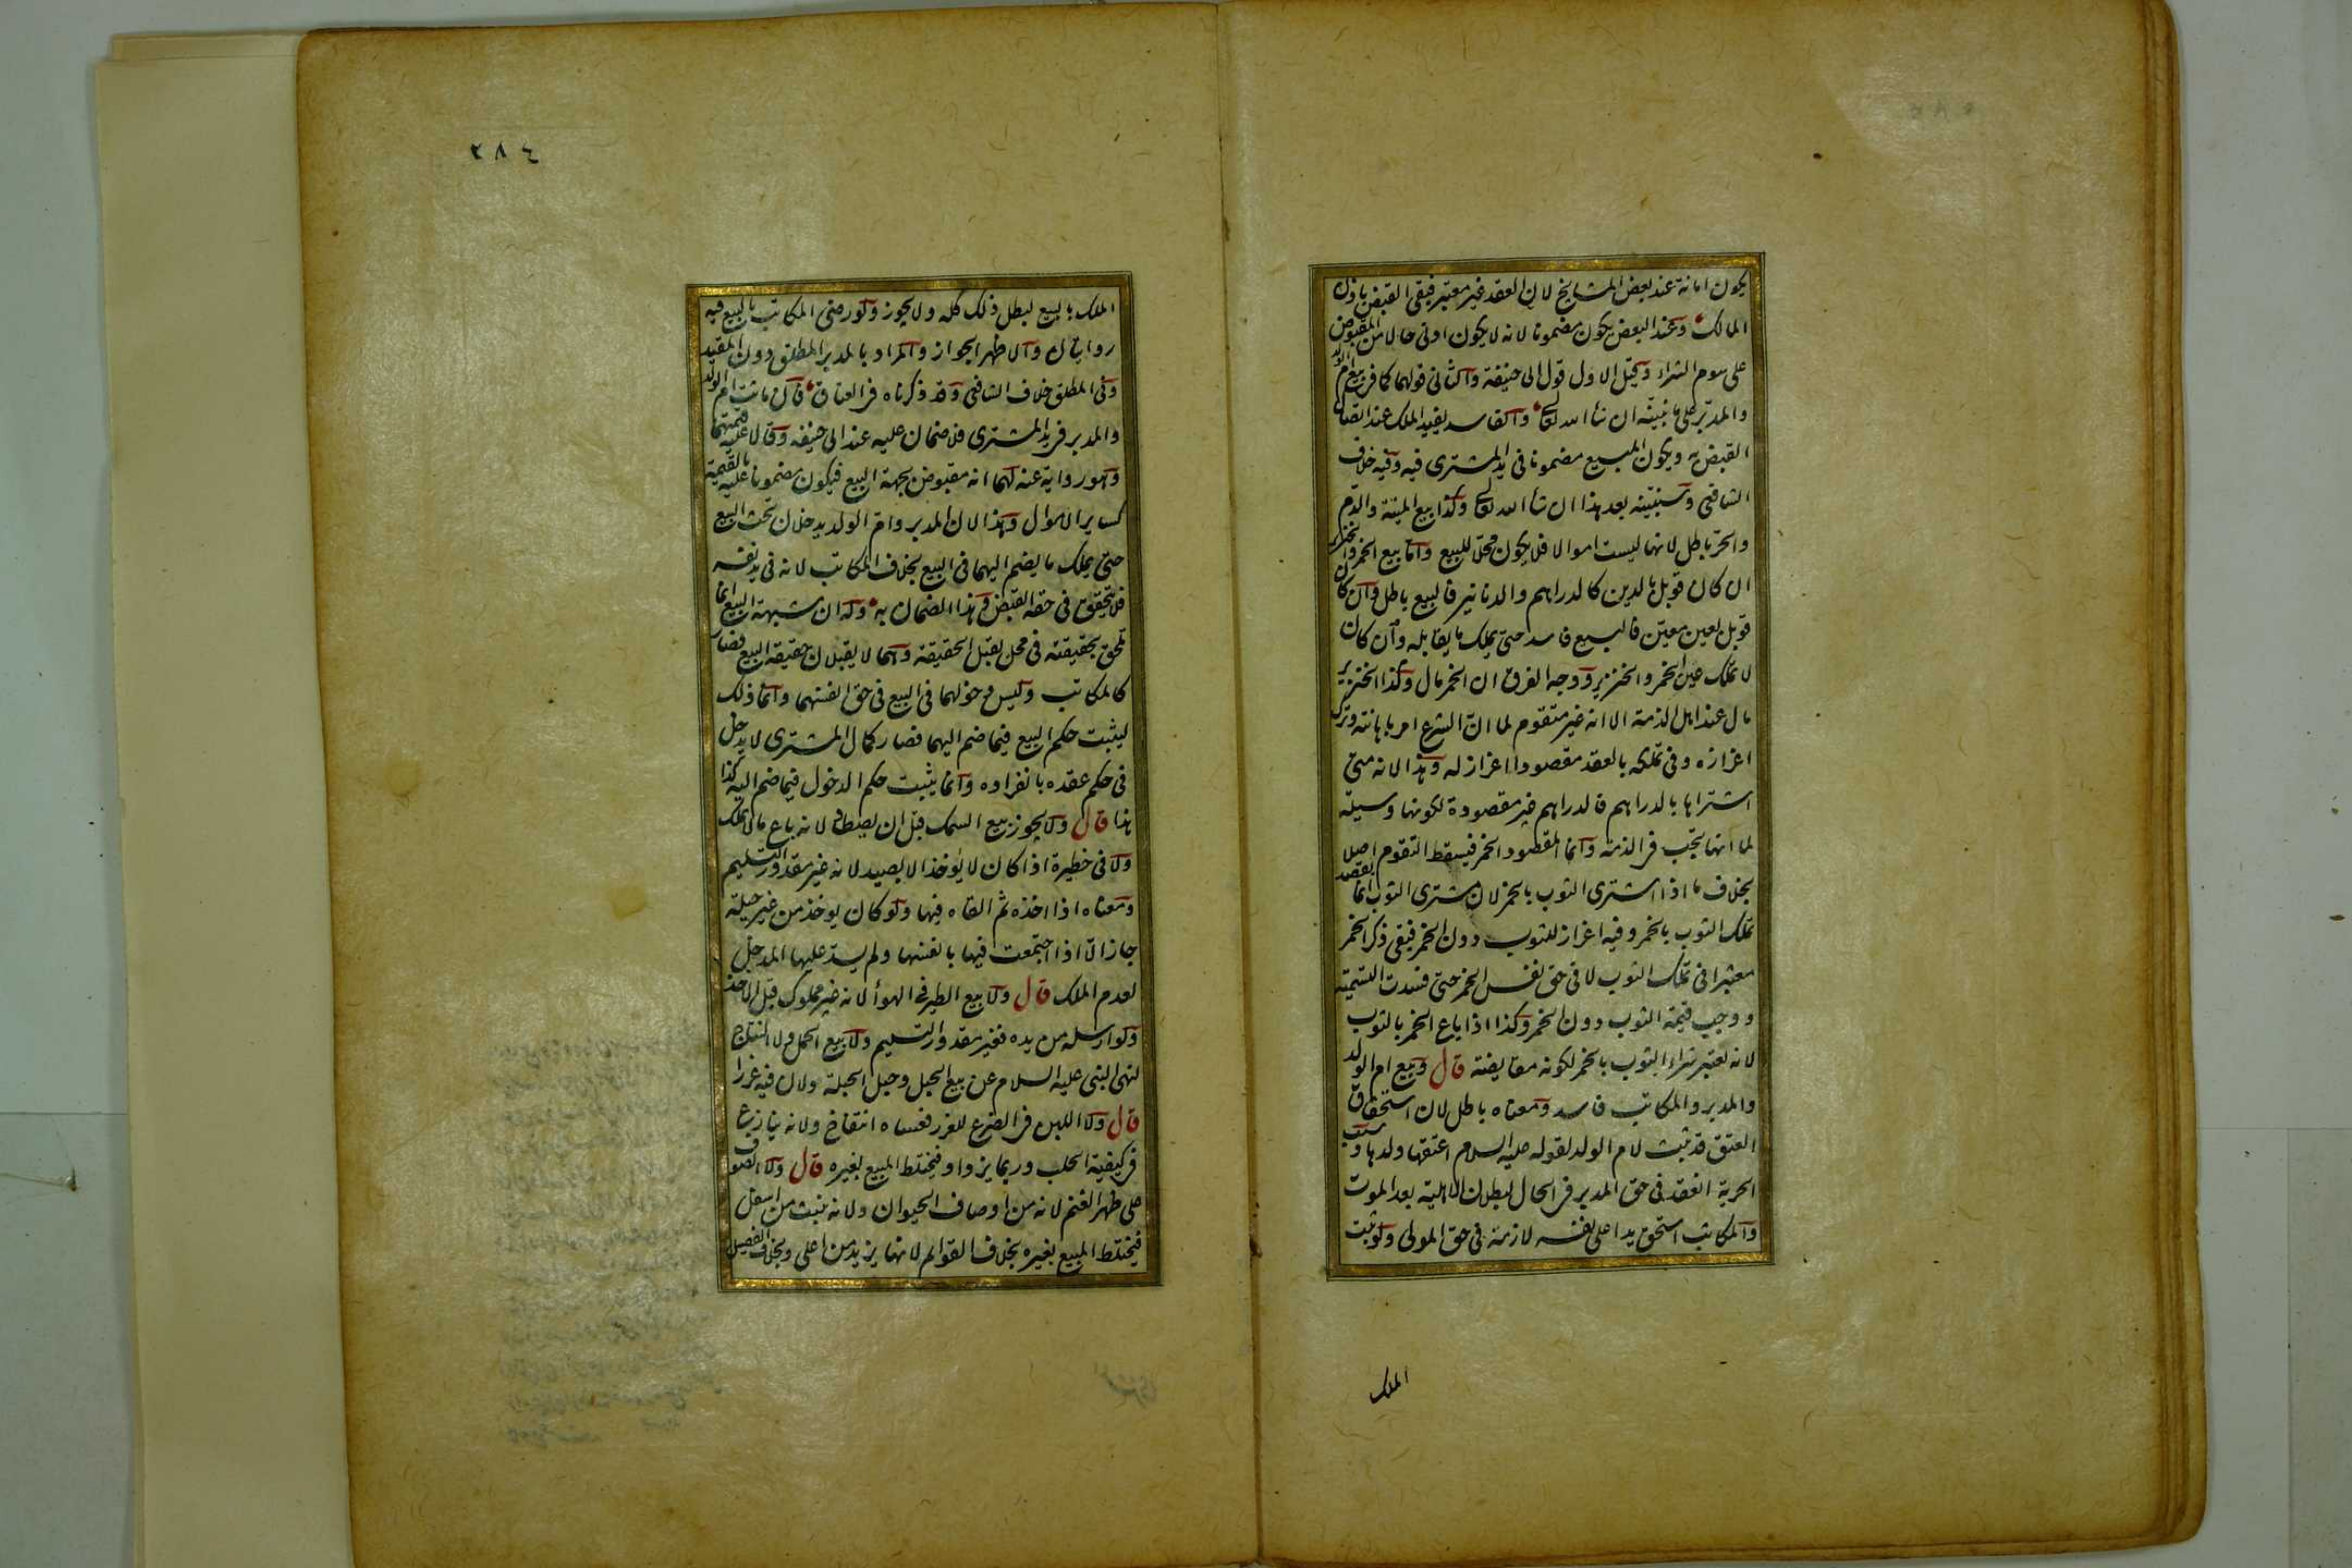 يكون امانة عند بعض المشايخ لان العقد غير معتبر فبقى القبض باذن
المالك وعند البعض يكون مضمونا لانه لا يكون ادنى حالا من المقبوض
على سوم الشراء وقيل الاول قول ابى حنيفة والثانى قولهما كما فى بيع ام الولد
والمدبر على ما نبينه ان شاء الله تعالى والفاسد يفيد الملك عند اتصال
القبض به ويكون المبيع مضمونا فى يد المشترى فيه وفيه خلاف
الشافعى وسنبينه بعد هذا ان شاء الله تعالى وكذا بيع الميتة والدم
والحر باطل لانها ليست اموالا فلا يكون محلا للبيع واما بيع الخمر والخنزير
ان كان قوبل بالدين كالدراهم والدنانير فالبيع باطل وان كان
قوبل بعين معين فالبيع فاسد حتى يملك ما يقابله وان كان
لا يملك عين الخمر والخنزير ووجه الفرق ان الخمر مال وكذا الخنزير
مال عند اهل الذمة الا انه غير متقوم لما ان الشرع امر باهانته وترك
اعزازه وفى تملكه بالعقد مقصودا اعزاز له وهذا لانه متى
اشتراها بالدراهم فالدراهم غير مقصودة لكونها وسيلة
لما انها تجب فى الذمة وانما المقصود الخمر فيسقط التقوم اصلا
بخلاف ما اذا اشترى الثوب بالخمر لان مشترى الثوب انما يقصد
تملك الثوب بالخمر وفيه اعزاز للثوب دون الخمر فبقى ذكر الخمر
معتبرا فى تملك الثوب لا فى حق نفس الخمر حتى فسدت التسمية
ووجب قيمة الثوب دون الخمر وكذا اذا باع الخمر بالثوب
لانه يعتبر شراء الثوب بالخمر لكونه مقايضة قال وبيع ام الولد
والمدبر والمكاتب فاسد ومعناه باطل لان استحقاق
العتق قد ثبت لام الولد لقوله عليه السلام اعتقها ولدها وسبب
الحرية انعقد فى حق المدبر فى الحال لبطلان الاهلية بعد الموت
والمكاتب استحق يدا على نفسه لازمة فى حق المولى ولو ثبت
الملك
٢٨٤
الملك بالبيع لبطل ذلك كله ولا يجوز ولو رضى المكاتب بالبيع فيه
روايتان والاظهر الجواز والمراد بالمدبر المطلق دون المقيد
وفى المطلق خلاف الشافعى وقد ذكرناه فى العتاق قال ماتت ام الولد
والمدبر فى يد المشترى فلا ضمان عليه عند ابى حنيفة وقالا عليه قيمتهما
وهو رواية عنه لهما انه مقبوض بجهة البيع فيكون مضمونا عليه بالقيمة
كساير الاموال وهذا لان المدبر وام الولد يدخلان تحت البيع
حتى يملك ما يضم اليهما فى البيع بخلاف المكاتب لانه فى يد نفسه
فلا يتحقق فى حقه القبض وهذا الضمان به وله ان شبهة البيع انما
تلحق بحقيقته فى محل يقبل الحقيقة وهما لا يقبلان حقيقة البيع فصار
كالمكاتب وليس دخولهما فى البيع فى حق انفسهما وانما ذلك
ليثبت حكم البيع فيما ضم اليهما فصار كمال المشترى لا يدخل
فى حكم عقده بانفراده وانما يثبت حكم الدخول فيما ضم اليه كذا
هذا قال ولا يجوز بيع السمك قبل ان يصطاد لانه باع ما لا يملك
ولا فى حظيرة اذا كان لا يؤخذ الا بصيد لانه غير مقدور التسليم
ومعناه اذا اخذه ثم القاه فيها ولو كان يوخذ من غير حيلة
جاز الا اذا اجتمعت فيها بانفسها ولم يسد عليها المدخل
لعدم الملك قال ولا بيع الطير فى الهوأ لانه غير مملوك قبل الاخذ
ولو ارسله من يده فغير مقدور التسليم ولا بيع الحمل ولا النتاج
لنهى النبى عليه السلام عن بيع الحبل وحبل الحبلة ولان فيه غررا
قال ولا اللبن فى الضرع للغرر فعساه انتفاخ ولانه ينازع
فى كيفية الحلب وربما يزداد فيختلط المبيع بغيره قال ولا الصوف
على ظهر الغنم لانه من اوصاف الحيوان ولانه ينبت من اسفل
فيختلط المبيع بغيره بخلاف القوائم لانها يزيد من اعلى وبخلاف الفصيل